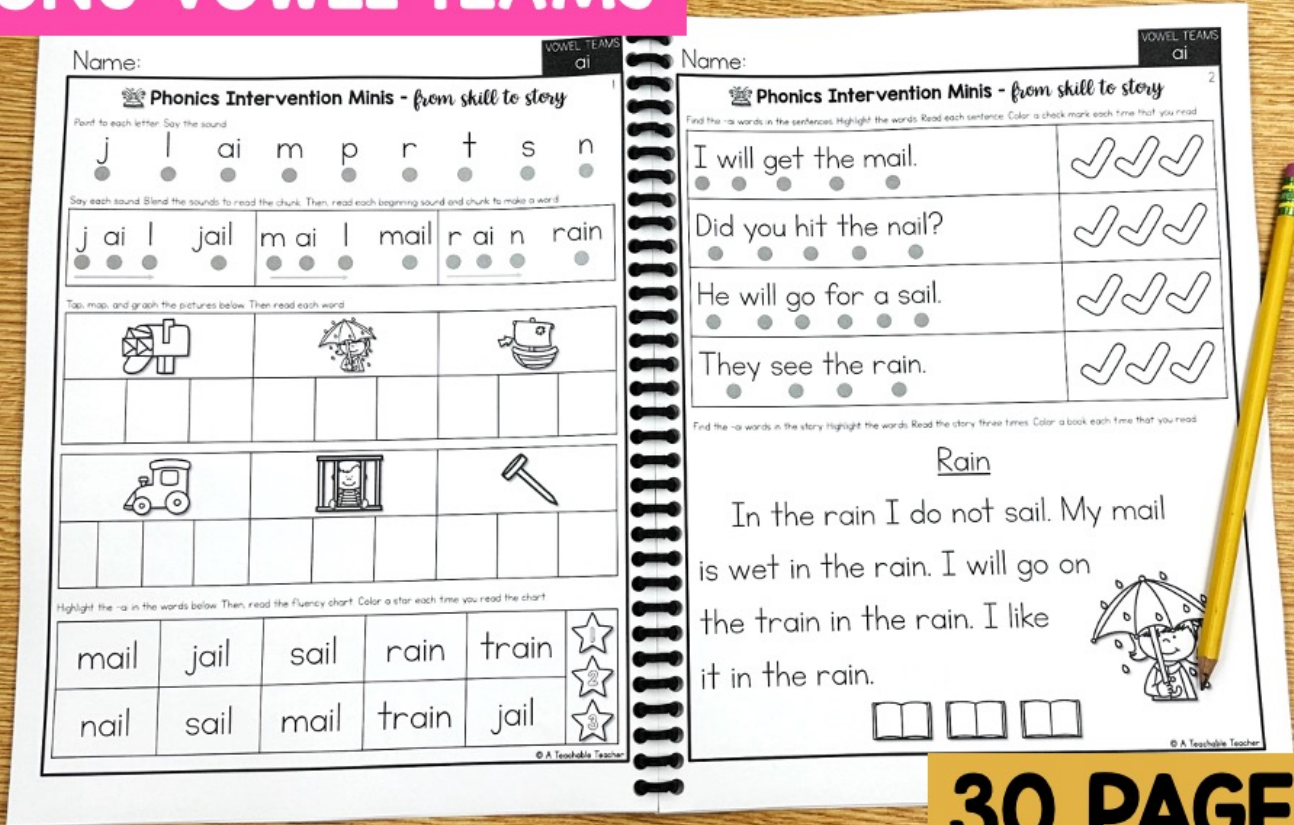 VOWEL TEAMS
Name:
VOWEL TEAMS
ai
1
Phonics Intervention Minis - from skill to story
Point to each letter. Say the sound
j l ai m p r t s n
Say each sound. Blend the sounds to read the chunk. Then, read each beginning sound and chunk to make a word
j ai l jail m ai l mail r ai n rain
Tap, map, and graph the pictures below. Then read each word
Highlight the -ai in the words below. Then, read the fluency chart. Color a star each time you read the chart
mail jail sail rain train
1
2
nail sail mail train jail
3
© A Teachable Teacher
Name:
VOWEL TEAMS
ai
2
Phonics Intervention Minis - from skill to story
Find the -ai words in the sentences. Highlight the words. Read each sentence. Color a check mark each time that you read
I will get the mail.
Did you hit the nail?
He will go for a sail.
They see the rain.
Find the -ai words in the story. Highlight the words. Read the story three times. Color a book each time that you read
Rain
In the rain I do not sail. My mail
is wet in the rain. I will go on
the train in the rain. I like
it in the rain.
© A Teachable Teacher
30 PAGE